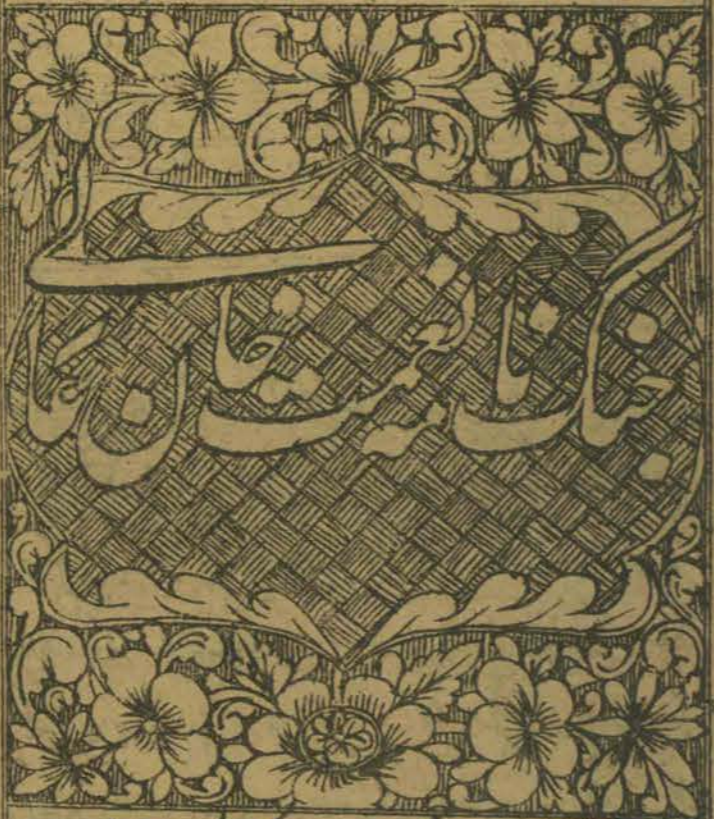 جنگ نامه نعمت خان عالے